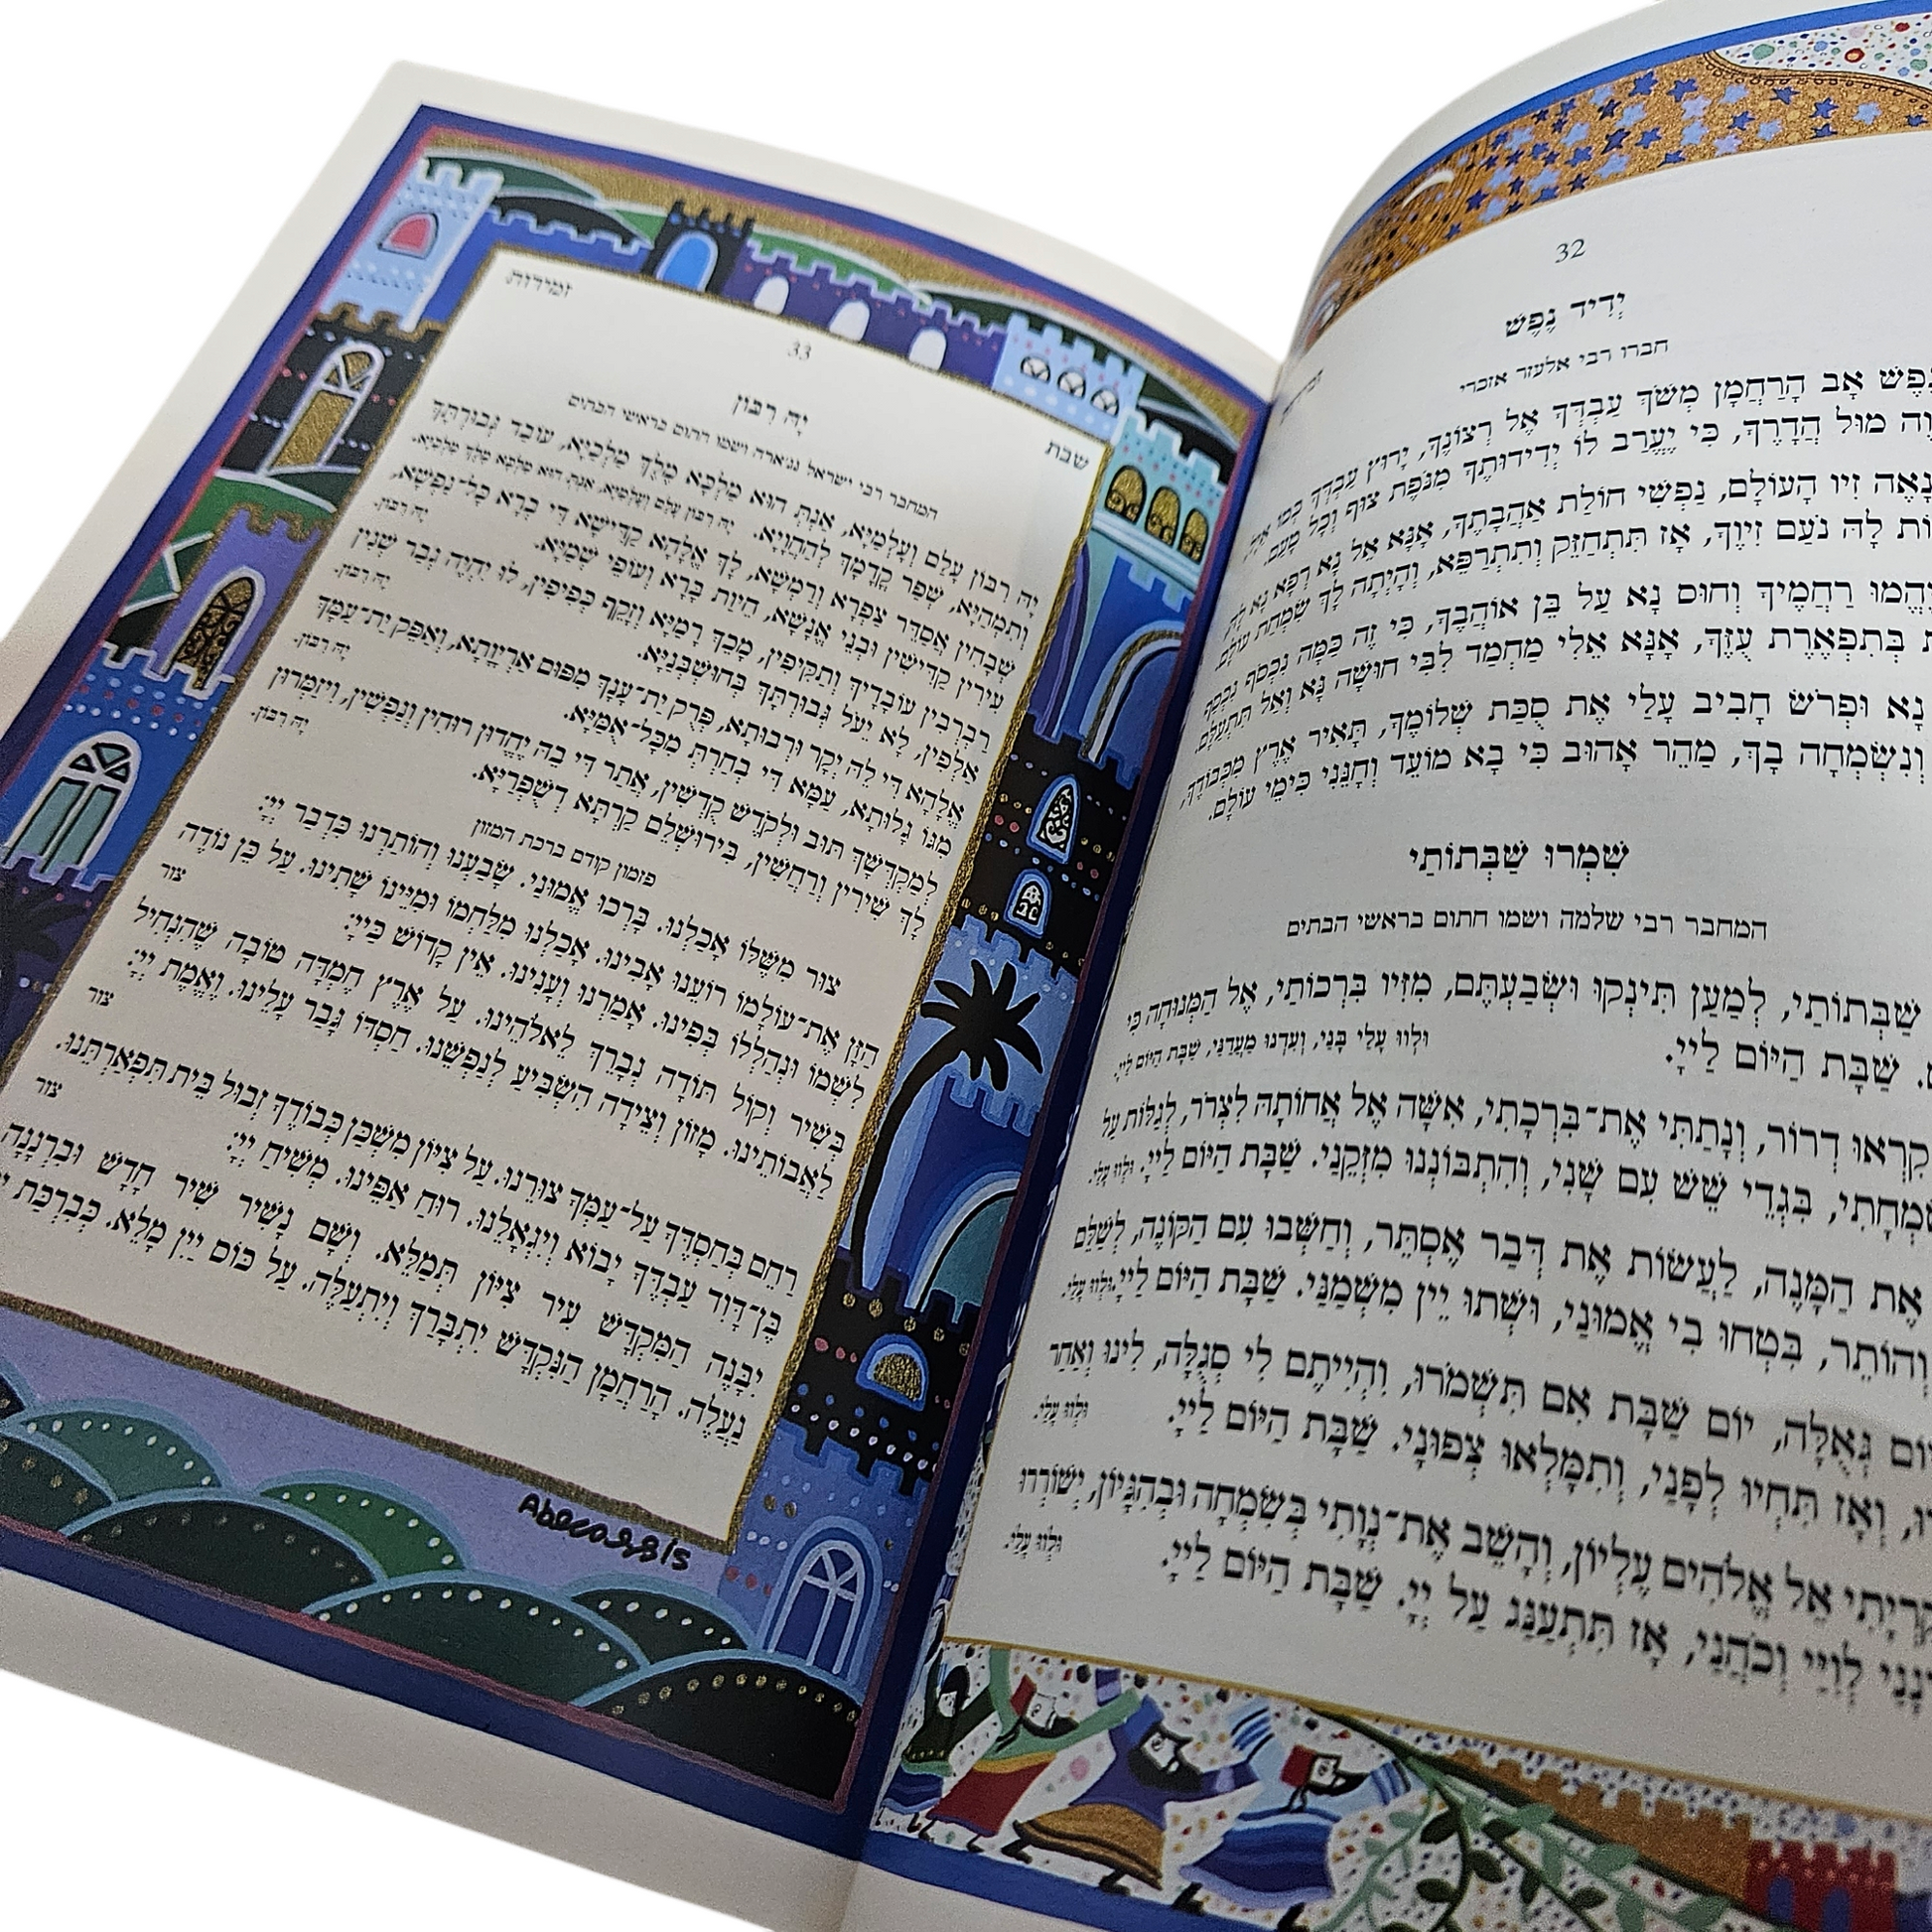 32
יְדִיד נֶפֶשׁ
חברו רבי אלעזר אזכרי
נֶפֶשׁ אָב הָרַחֲמָן מְשֹׁךְ עַבְדְּךָ אֶל רְצוֹנֶךָ, יָרוּץ עַבְדְּךָ כְּמוֹ אַיָּל,
מוּל הֲדָרֶךָ, כִּי יֶעֱרַב לוֹ יְדִידוּתֶךָ מִנֹּפֶת צוּף וְכָל טָעַם.
נָאֶה זִיו הָעוֹלָם, נַפְשִׁי חוֹלַת אַהֲבָתֶךָ, אָנָּא אֵל נָא רְפָא נָא לָהּ,
לָהּ נֹעַם זִיוֶךָ, אָז תִּתְחַזֵּק וְתִתְרַפֵּא, וְהָיְתָה לָךְ שִׂמְחַת עוֹלָם.
יֶהֱמוּ רַחֲמֶיךָ וְחוּס נָא עַל בֵּן אוֹהֲבֶךָ, כִּי זֶה כַּמָּה נִכְסֹף נִכְסַף
בְּתִפְאֶרֶת עֻזֶּךָ, אָנָּא אֵלִי מַחְמַד לִבִּי חוּשָׁה נָּא וְאַל תִּתְעַלָּם.
נָא וּפְרֹשׂ חָבִיב עָלַי אֶת סֻכַּת שְׁלוֹמֶךָ, תָּאִיר אֶרֶץ מִכְּבוֹדֶךָ,
וְנִשְׂמְחָה בָךְ, מַהֵר אָהוּב כִּי בָא מוֹעֵד וְחָנֵּנִי כִּימֵי עוֹלָם.
שִׁמְרוּ שַׁבְּתוֹתַי
המחבר רבי שלמה ושמו חתום בראשי הבתים
שַׁבְּתוֹתַי, לְמַעַן תִּינְקוּ וּשְׂבַעְתֶּם, מִזִּיו בִּרְכוֹתַי, אֶל הַמְּנוּחָה כִּי
שַׁבָּת הַיּוֹם לַייָ. וּלְווּ עָלַי בָּנַי, וְעִדְנוּ מַעֲדַנַּי, שַׁבָּת הַיּוֹם לַייָ.
קִרְאוּ דְרוֹר, וְנָתַתִּי אֶת־בִּרְכָתִי, אִשָּׁה אֶל אֲחוֹתָהּ לִצְרֹר, לְגַלּוֹת עַל
שִׂמְחָתִי, בִּגְדֵי שֵׁשׁ עִם שָׁנִי, וְהִתְבּוֹנְנוּ מִזְּקֵנַי. שַׁבָּת הַיּוֹם לַייָ. וּלְווּ עָלַי.
אֶת הַמָּנֶה, לַעֲשׂוֹת אֶת דְּבַר אֶסְתֵּר, וְחִשְּׁבוּ עִם הַקּוֹנֶה, לְשַׁלֵּם
וְהוֹתֵר, בִּטְחוּ בִי אֱמוּנַי, וּשְׁתוּ יֵין מִשְׁמַנַּי. שַׁבָּת הַיּוֹם לַייָ. וּלְווּ עָלַי.
גְּאֻלָּה, יוֹם שַׁבָּת אִם תִּשְׁמֹרוּ, וִהְיִיתֶם לִי סְגֻלָּה, לִינוּ וְאַחַר
וְאָז תִּחְיוּ לְפָנַי, וְתִמָּלְאוּ צְפוּנָי. שַׁבָּת הַיּוֹם לַייָ. וּלְווּ עָלַי.
קִרְיָתִי אֵל אֱלֹהִים עֶלְיוֹן, וְהָשֵׁב אֶת־נְוָתִי בְּשִׂמְחָה וּבְהִגָּיוֹן, יְשׁוֹרְרוּ
לְוִיַּי וְכֹהֲנַי, אָז תִּתְעַנַּג עַל יְיָ. שַׁבָּת הַיּוֹם לַייָ. וּלְווּ עָלַי.
שבת
33
זמירות
יָהּ רִבּוֹן
המחבר רבי ישראל נג׳ארה ושמו חתום בראשי הבתים
יָהּ רִבּוֹן עָלַם וְעָלְמַיָּא, אַנְתְּ הוּא מַלְכָּא מֶלֶךְ מַלְכַיָּא, עוֹבַד גְּבוּרְתֵּךְ
וְתִמְהַיָּא, שְׁפַר קֳדָמָךְ לְהַחֲוָיָא. יָהּ רִבּוֹן עָלַם וְעָלְמַיָּא, אַנְתְּ הוּא מַלְכָּא מֶלֶךְ מַלְכַיָּא.
שְׁבָחִין אֲסַדֵּר צַפְרָא וְרַמְשָׁא, לָךְ אֱלָהָא קַדִּישָׁא דִּי בְרָא כָּל־נַפְשָׁא,
עִירִין קַדִּישִׁין וּבְנֵי אֱנָשָׁא, חֵיוַת בָּרָא וְעוֹפֵי שְׁמַיָּא. יָהּ רִבּוֹן.
רַבְרְבִין עוֹבָדָיךְ וְתַקִּיפִין, מָכֵךְ רָמַיָּא וְזָקֵף כְּפִיפִין, לוּ יִחְיֶה גְּבַר שְׁנִין
אַלְפִין, לָא יֵעַל גְּבוּרְתֵּךְ בְּחוּשְׁבְּנַיָּא. יָהּ רִבּוֹן.
אֱלָהָא דִּי לֵהּ יְקָר וּרְבוּתָא, פְּרֻק יַת־עָנָךְ מִפּוּם אַרְיְוָתָא, וְאַפֵּק יַת־עַמָּךְ
מִגּוֹ גָלוּתָא, עַמָּא דִּי בְחַרְתְּ מִכָּל־אֻמַּיָּא. יָהּ רִבּוֹן.
לְמַקְדְּשָׁךְ תּוּב וּלְקֹדֶשׁ קֻדְשִׁין, אֲתַר דִּי בֵהּ יֶחֱדוּן רוּחִין וְנַפְשִׁין, וִיזַמְּרוּן
לָךְ שִׁירִין וְרַחֲשִׁין, בִּירוּשְׁלֵם קַרְתָּא דְשֻׁפְרַיָּא. יָהּ רִבּוֹן.
פזמון קודם ברכת המזון
צוּר מִשֶּׁלּוֹ אָכַלְנוּ. בָּרְכוּ אֱמוּנַי. שָׂבַעְנוּ וְהוֹתַרְנוּ כִּדְבַר יְיָ:
הַזָּן אֶת־עוֹלָמוֹ רוֹעֵנוּ אָבִינוּ. אָכַלְנוּ מִלַּחְמוֹ וּמִיֵּינוֹ שָׁתִינוּ. עַל כֵּן נוֹדֶה
לִשְׁמוֹ וּנְהַלְלוֹ בְּפִינוּ. אָמַרְנוּ וְעָנִינוּ. אֵין קָדוֹשׁ כַּייָ: צור
בְּשִׁיר וְקוֹל תּוֹדָה נְבָרֵךְ לֵאלֹהֵינוּ. עַל אֶרֶץ חֶמְדָּה טוֹבָה שֶׁהִנְחִיל
לַאֲבוֹתֵינוּ. מָזוֹן וְצֵידָה הִשְׂבִּיעַ לְנַפְשֵׁנוּ. חַסְדּוֹ גָּבַר עָלֵינוּ. וֶאֱמֶת יְיָ: צור
רַחֵם בְּחַסְדֶּךָ עַל־עַמְּךָ צוּרֵנוּ. עַל צִיּוֹן מִשְׁכַּן כְּבוֹדֶךָ זְבוּל בֵּית תִּפְאַרְתֵּנוּ.
בֶּן־דָּוִד עַבְדֶּךָ יָבוֹא וְיִגְאָלֵנוּ. רוּחַ אַפֵּינוּ. מְשִׁיחַ יְיָ: צור
יִבָּנֶה הַמִּקְדָּשׁ עִיר צִיּוֹן תְּמַלֵּא. וְשָׁם נָשִׁיר שִׁיר חָדָשׁ וּבִרְנָנָה
נַעֲלֶה. הָרַחֲמָן הַנִּקְדָּשׁ יִתְבָּרַךְ וְיִתְעַלֶּה. עַל כּוֹס יַיִן מָלֵא. כְּבִרְכַּת
Abecassis